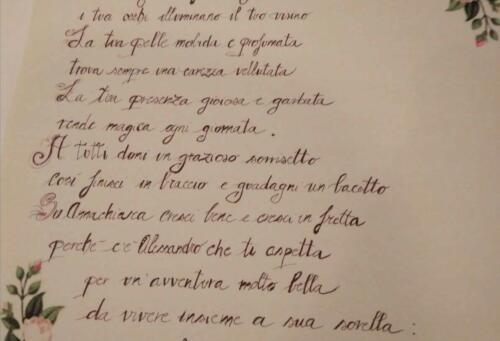 i tuoi occhi illuminano il tuo visino
La tua pelle morbida e profumata
trova sempre una carezza vellutata
La tua presenza gioiosa e garbata
rende magica ogni giornata.
A tutti doni un grazioso sorrisetto
così finisci in braccio e guadagni un bacetto
Su Annachiara cresci bene e cresci in fretta
perché c'è Alessandro che ti aspetta
per un'avventura molto bella
da vivere insieme a sua sorella: